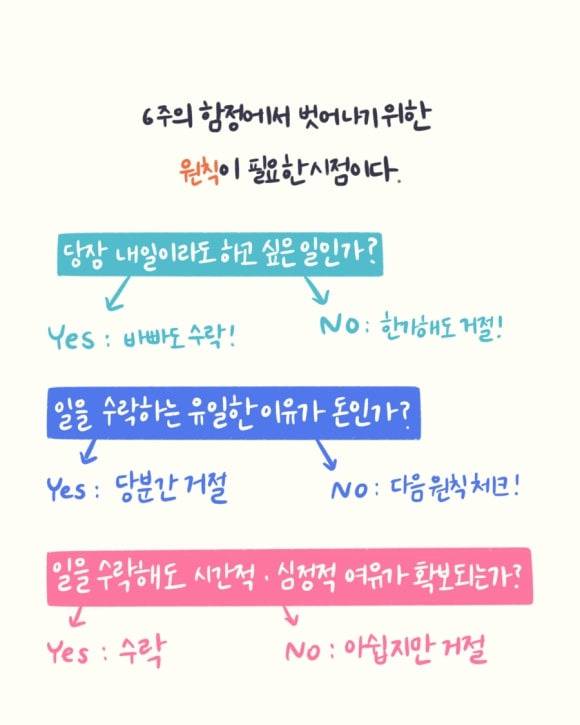 6주의 함정에서 벗어나기 위한
원칙이 필요한 시점이다.
당장 내일이라도 하고 싶은 일인가?
Yes : 바빠도 수락!
No : 한가해도 거절!
일을 수락하는 유일한 이유가 돈인가?
Yes : 당분간 거절
No : 다음 원칙 체크!
일을 수락해도 시간적 · 심정적 여유가 확보되는가?
Yes : 수락
No : 아쉽지만 거절